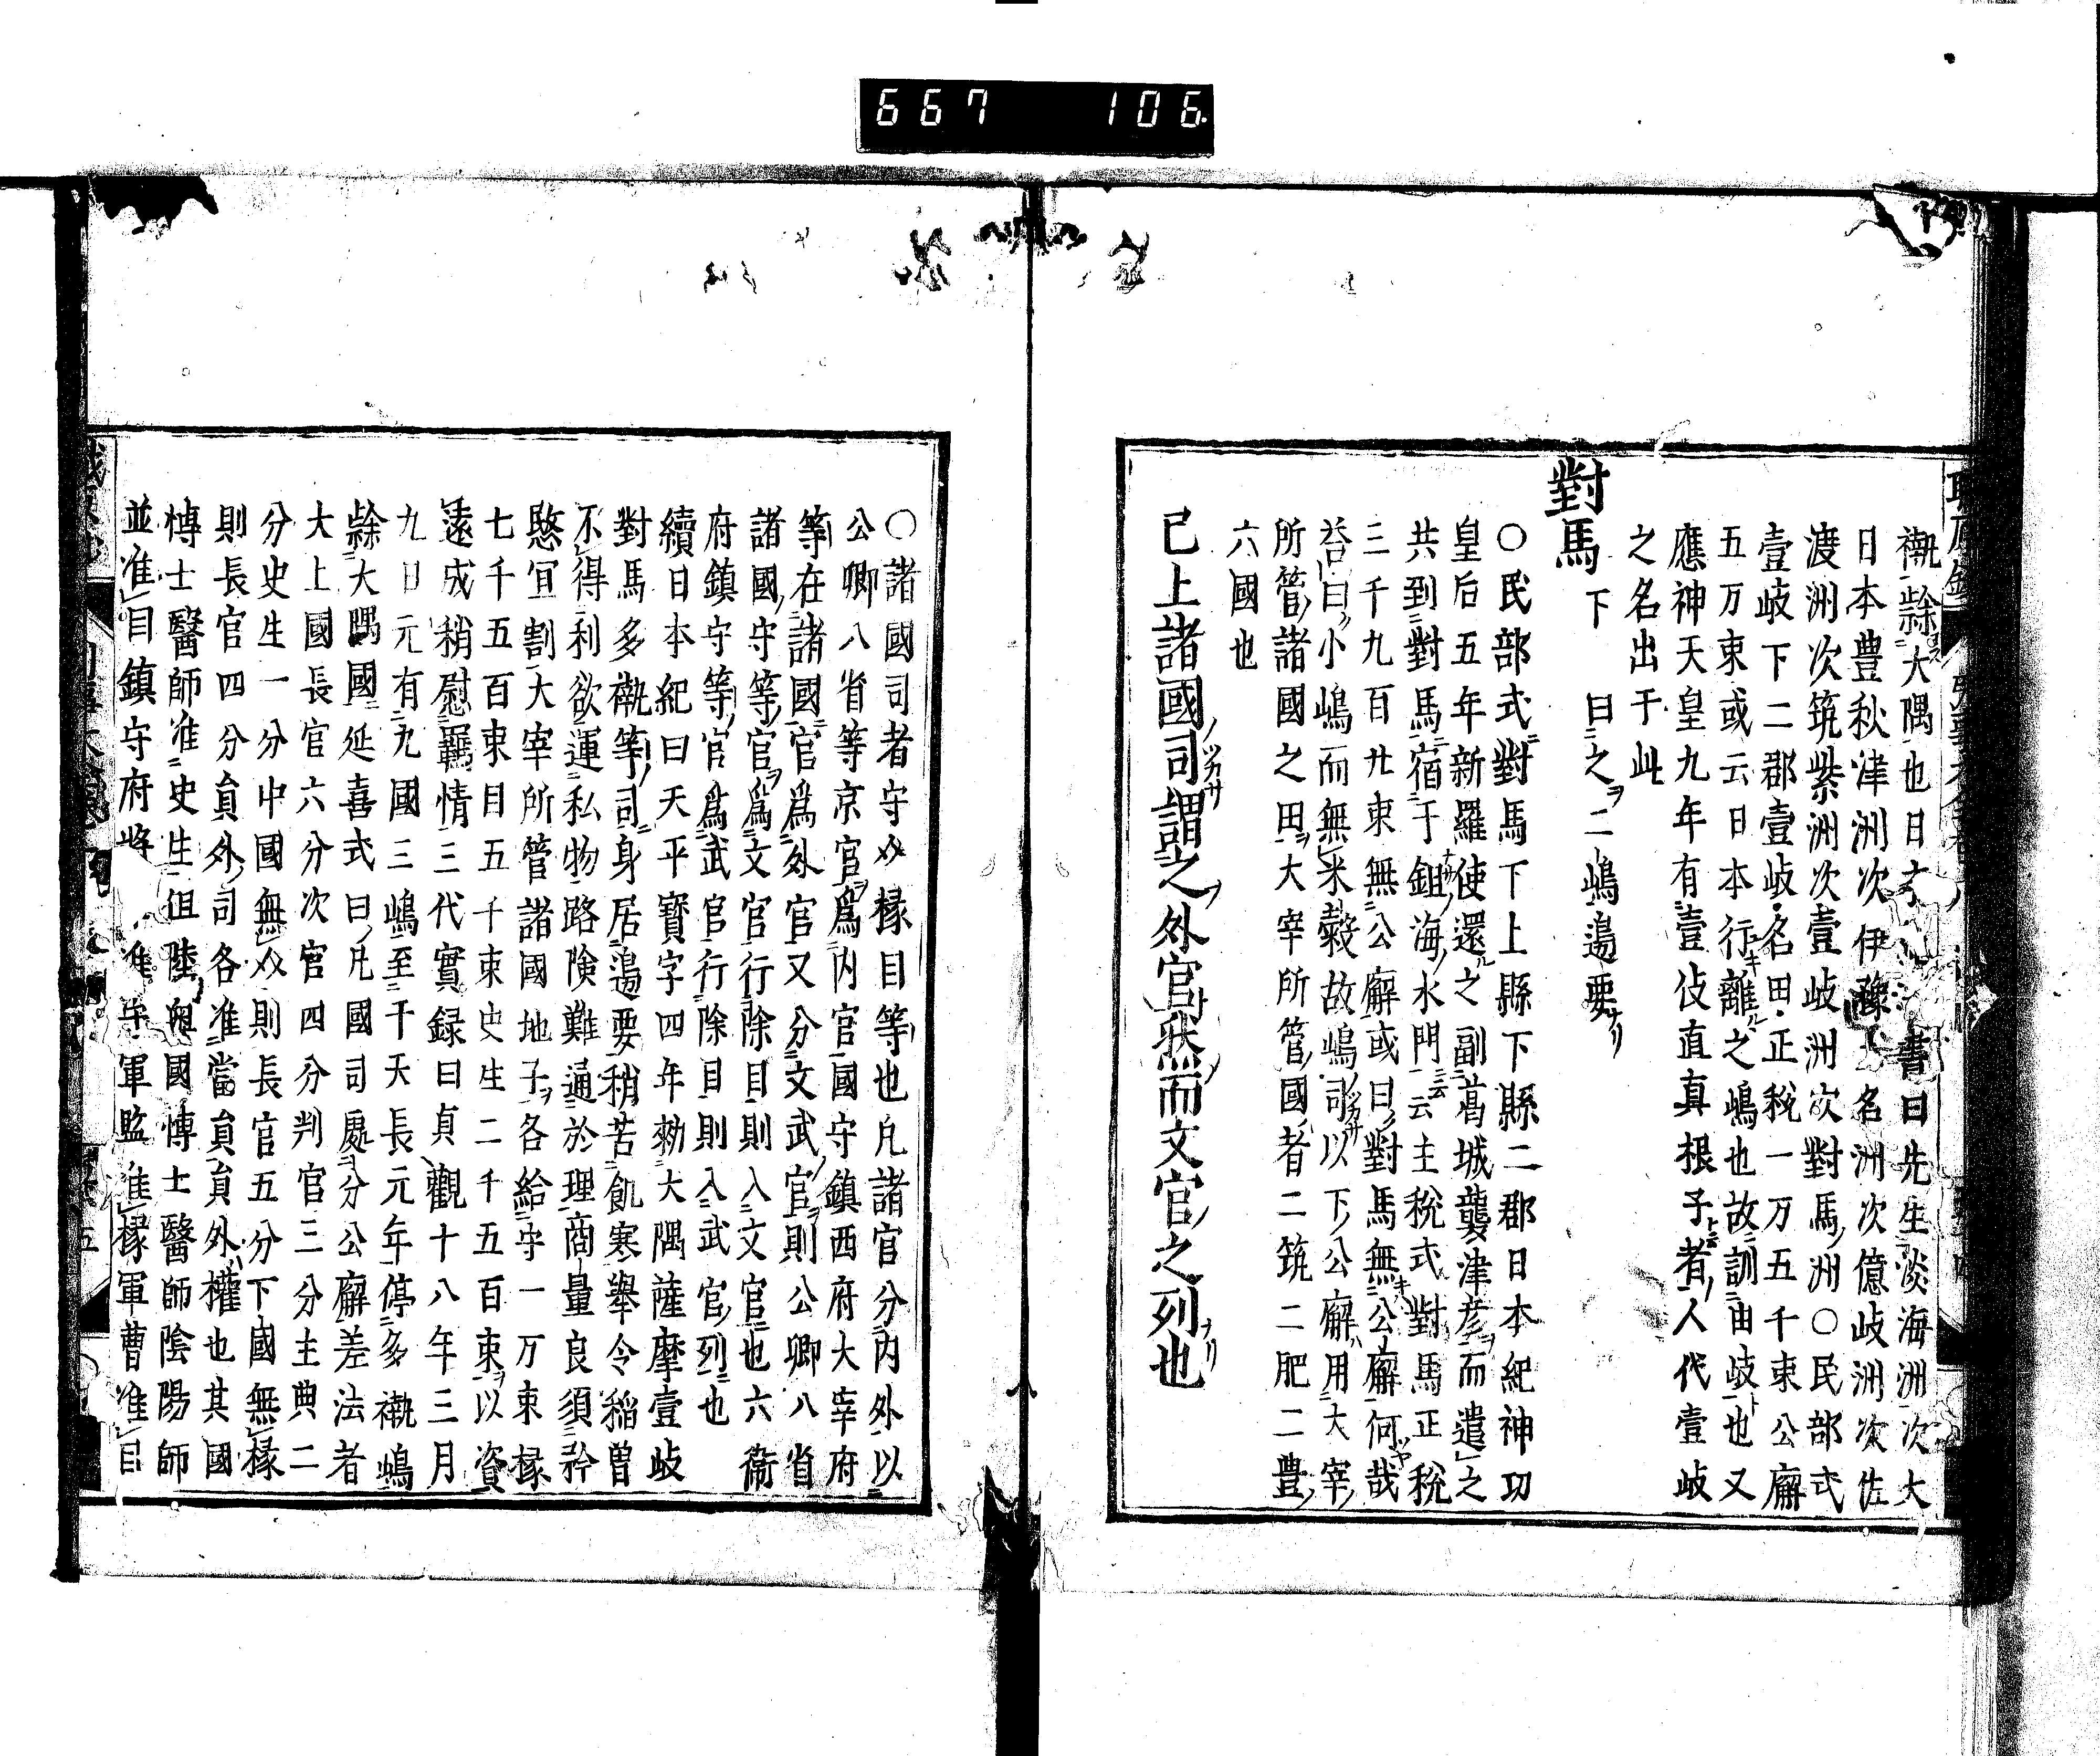 667 106
𥘎除大隅也日本書曰先生淡海洲次大
日本豊秋津洲次伊豫名洲次億岐洲次佐
渡洲次筑紫洲次壹岐洲次對馬洲○民部式
壹岐下二郡壹岐名田正税一万五千束公廨
五万束或云日本行離之嶋也故訓由岐也又
應神天皇九年有壹伎直真根子者人代壹岐
之名出于此
對馬下 曰之二嶋邊要
○民部式對馬下上縣下縣二郡日本紀神功
皇后五年新羅使還之副葛城襲津彦而遣之
共到對馬宿于鉏海水門云云主税式對馬正税
三千九百廿束無公廨或曰對馬無公廨何哉
荅曰小嶋而無米穀故嶋司以下公廨用大宰
所管諸國之田大宰所管國者二筑二肥二豊
六國也
已上諸國司謂之外官然而文官之列也
○諸國司者守介椽目等也凡諸官分内外以
公卿八省等京官爲内官國守鎮西府大宰府
等在諸國官爲外官又分文武官則公卿八省
諸國守等官爲文官行除目則入文官也六衛
府鎮守等官爲武官行除目則入武官列也
續日本紀曰天平寳字四年勅大隅薩摩壹岐
對馬多𥘎等司身居邊要稍苦飢寒舉令稲曽
不得利欲運私物路険難通於理商量良須矜
愍宜割大宰所管諸國地子各給守一万束椽
七千五百束目五千束史生二千五百束以資
遠成稍慰羈情三代實録曰貞觀十八年三月
九日元有九國三嶋至于天長元年停多𥘎嶋
除大隅國延喜式曰凡國司處分公廨差法者
大上國長官六分次官四分判官三分主典二
分史生一分中國無介則長官五分下國無椽
則長官四分員外司各准當員員外權也其國
博士醫師准史生但陸奥國博士醫師陰陽師
並准目鎮守府將 准守軍監准椽軍曹准目